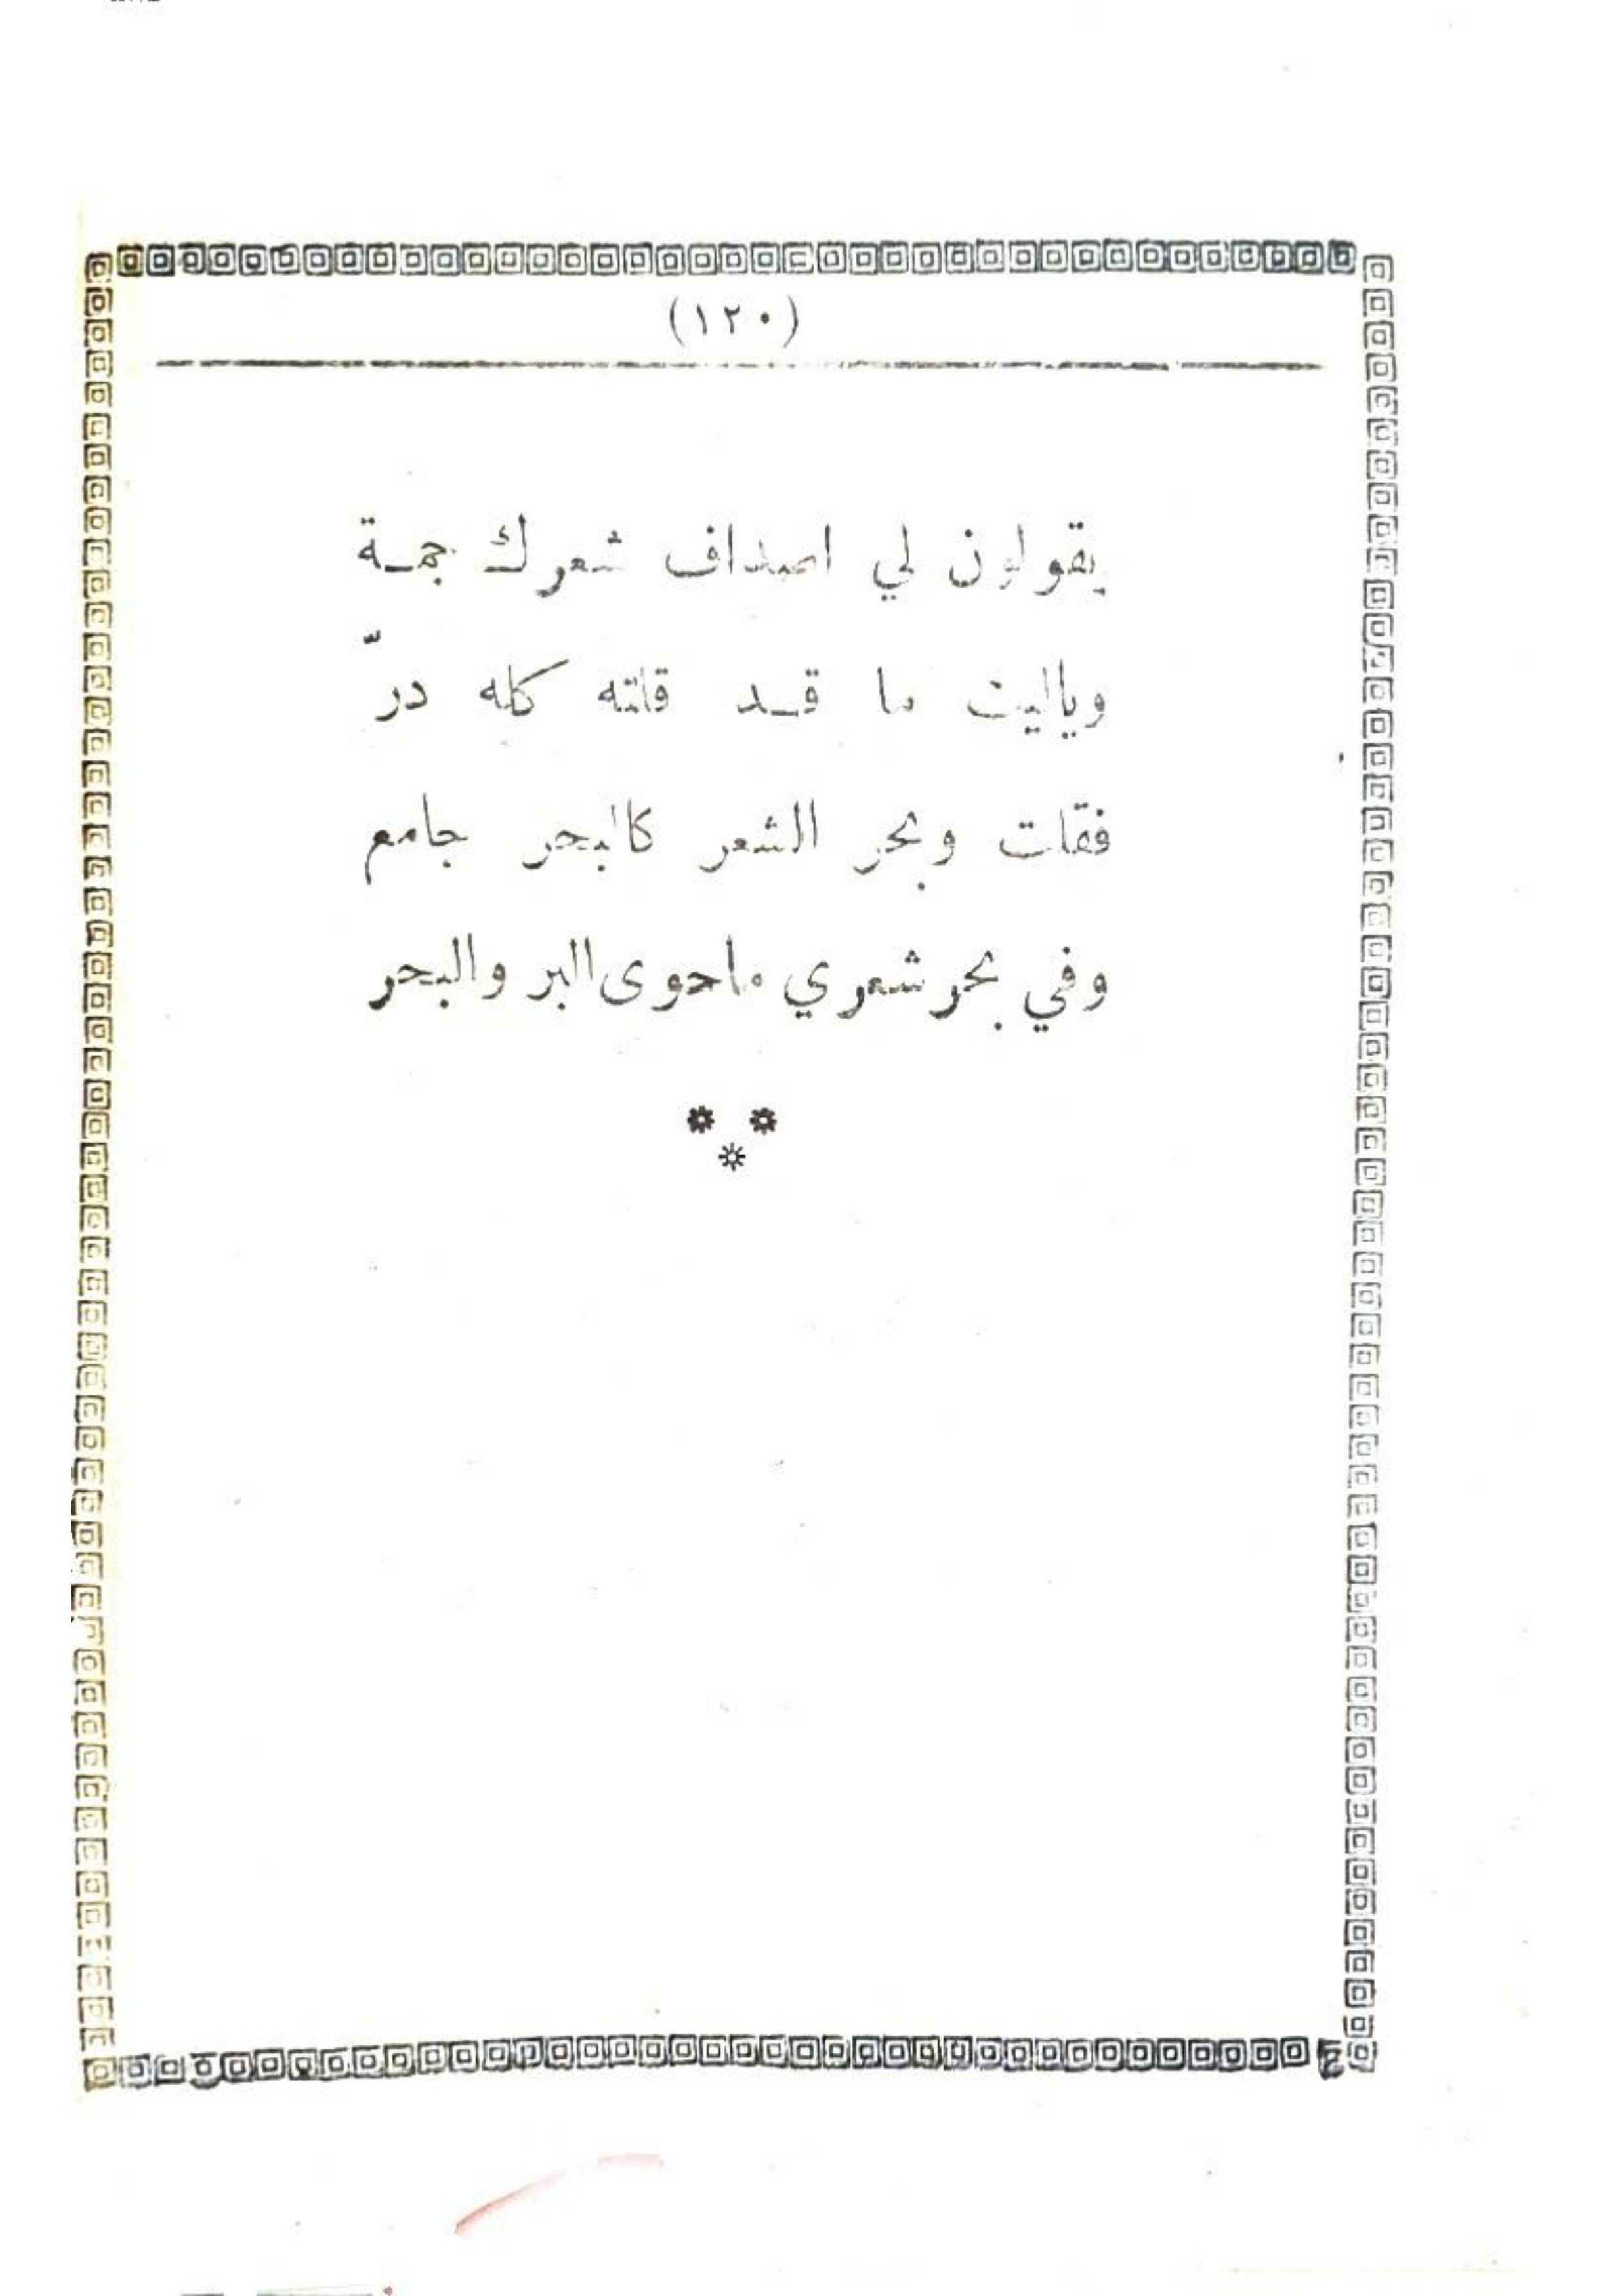 (١٢٠)
يقولون لي اصداف شعرك جمـة
وياليت ما قـد قلته كله درّ
فقلت وبحر الشعر كالبحر جامع
وفي بحر شعري ماحوى البر والبحر